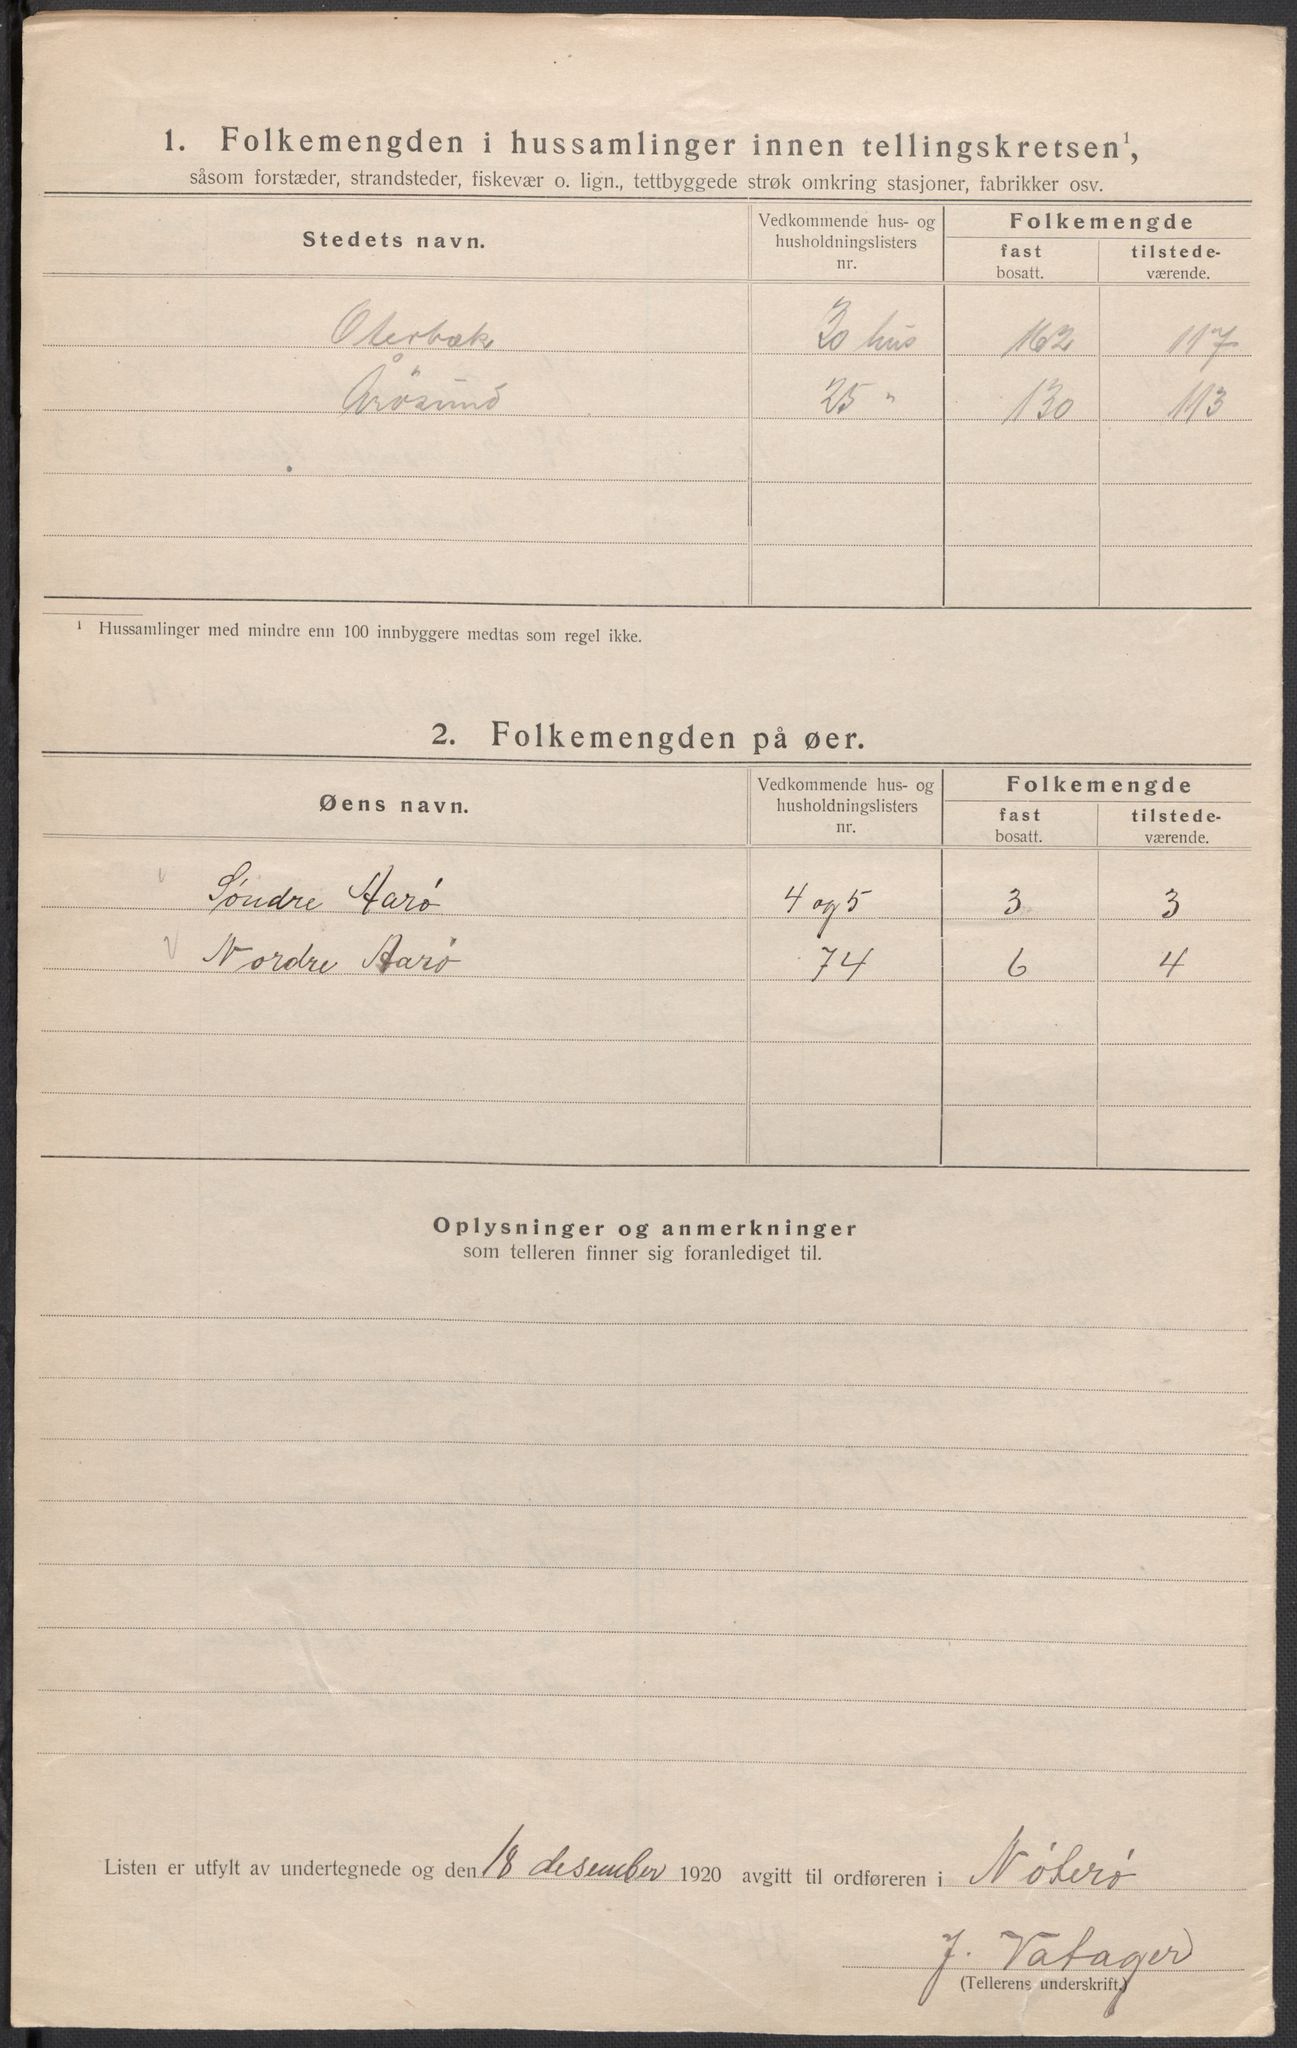 1. Folkemengden i hussamlinger innen tellingskretsen¹,
såsom forstæder, strandsteder, fiskevær o. lign., tettbyggede strøk omkring stasjoner, fabrikker osv.
Stedets navn. Vedkommende hus- og husholdningslisters nr. Folkemengde
fast bosatt. tilstedeværende.
Oterbæk 30 hus 162 117
Årösund 25 " 130 113
¹ Hussamlinger med mindre enn 100 innbyggere medtas som regel ikke.
2. Folkemengden på øer.
Øens navn. Vedkommende hus- og husholdningslisters nr. Folkemengde
fast bosatt. tilstedeværende.
Søndre Aarø 4 og 5 3 3
Nordre Aarø 74 6 4
Oplysninger og anmerkninger
som telleren finner sig foranlediget til.
Listen er utfylt av undertegnede og den 18 desember 1920 avgitt til ordføreren i Nøterø
J. Vatager
(Tellerens underskrift.)